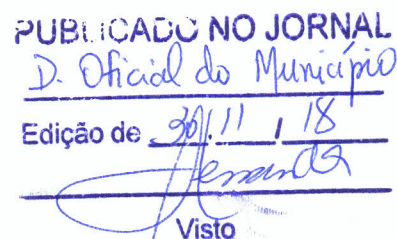 PUBLICADO NO JORNAL
D. Oficial do Município
Edição de 30 / 11 / 18
Visto